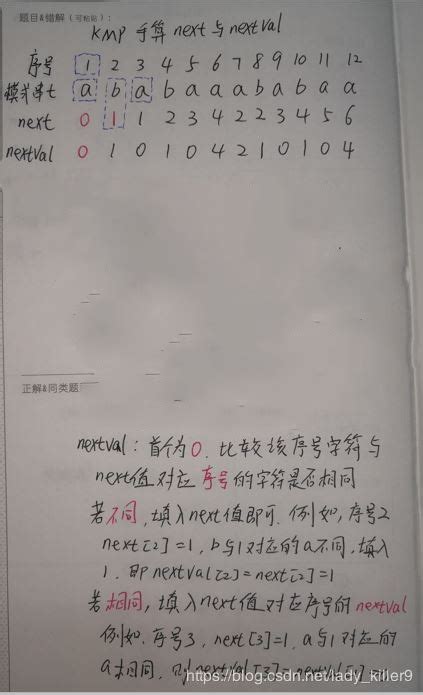 题目&错解（可粘贴）：
KMP 手算 next 与 nextval
序号 1 2 3 4 5 6 7 8 9 10 11 12
模式串t a b a b a a a b a b a a
next 0 1 1 2 3 4 2 2 3 4 5 6
nextval 0 1 0 1 0 4 2 1 0 1 0 4
正解&同类题
nextval：首个为0. 比较该序号字符与
next值对应序号的字符是否相同
若不同，填入next值即可. 例如，序号2
next[2]=1，b与1对应的a不同，填入
1，即nextval[2]=next[2]=1
若相同，填入next值对应序号的nextval
例如. 序号3，next[3]=1，a与1对应的
a相同，
https://blog.csdn.net/lady_killer9